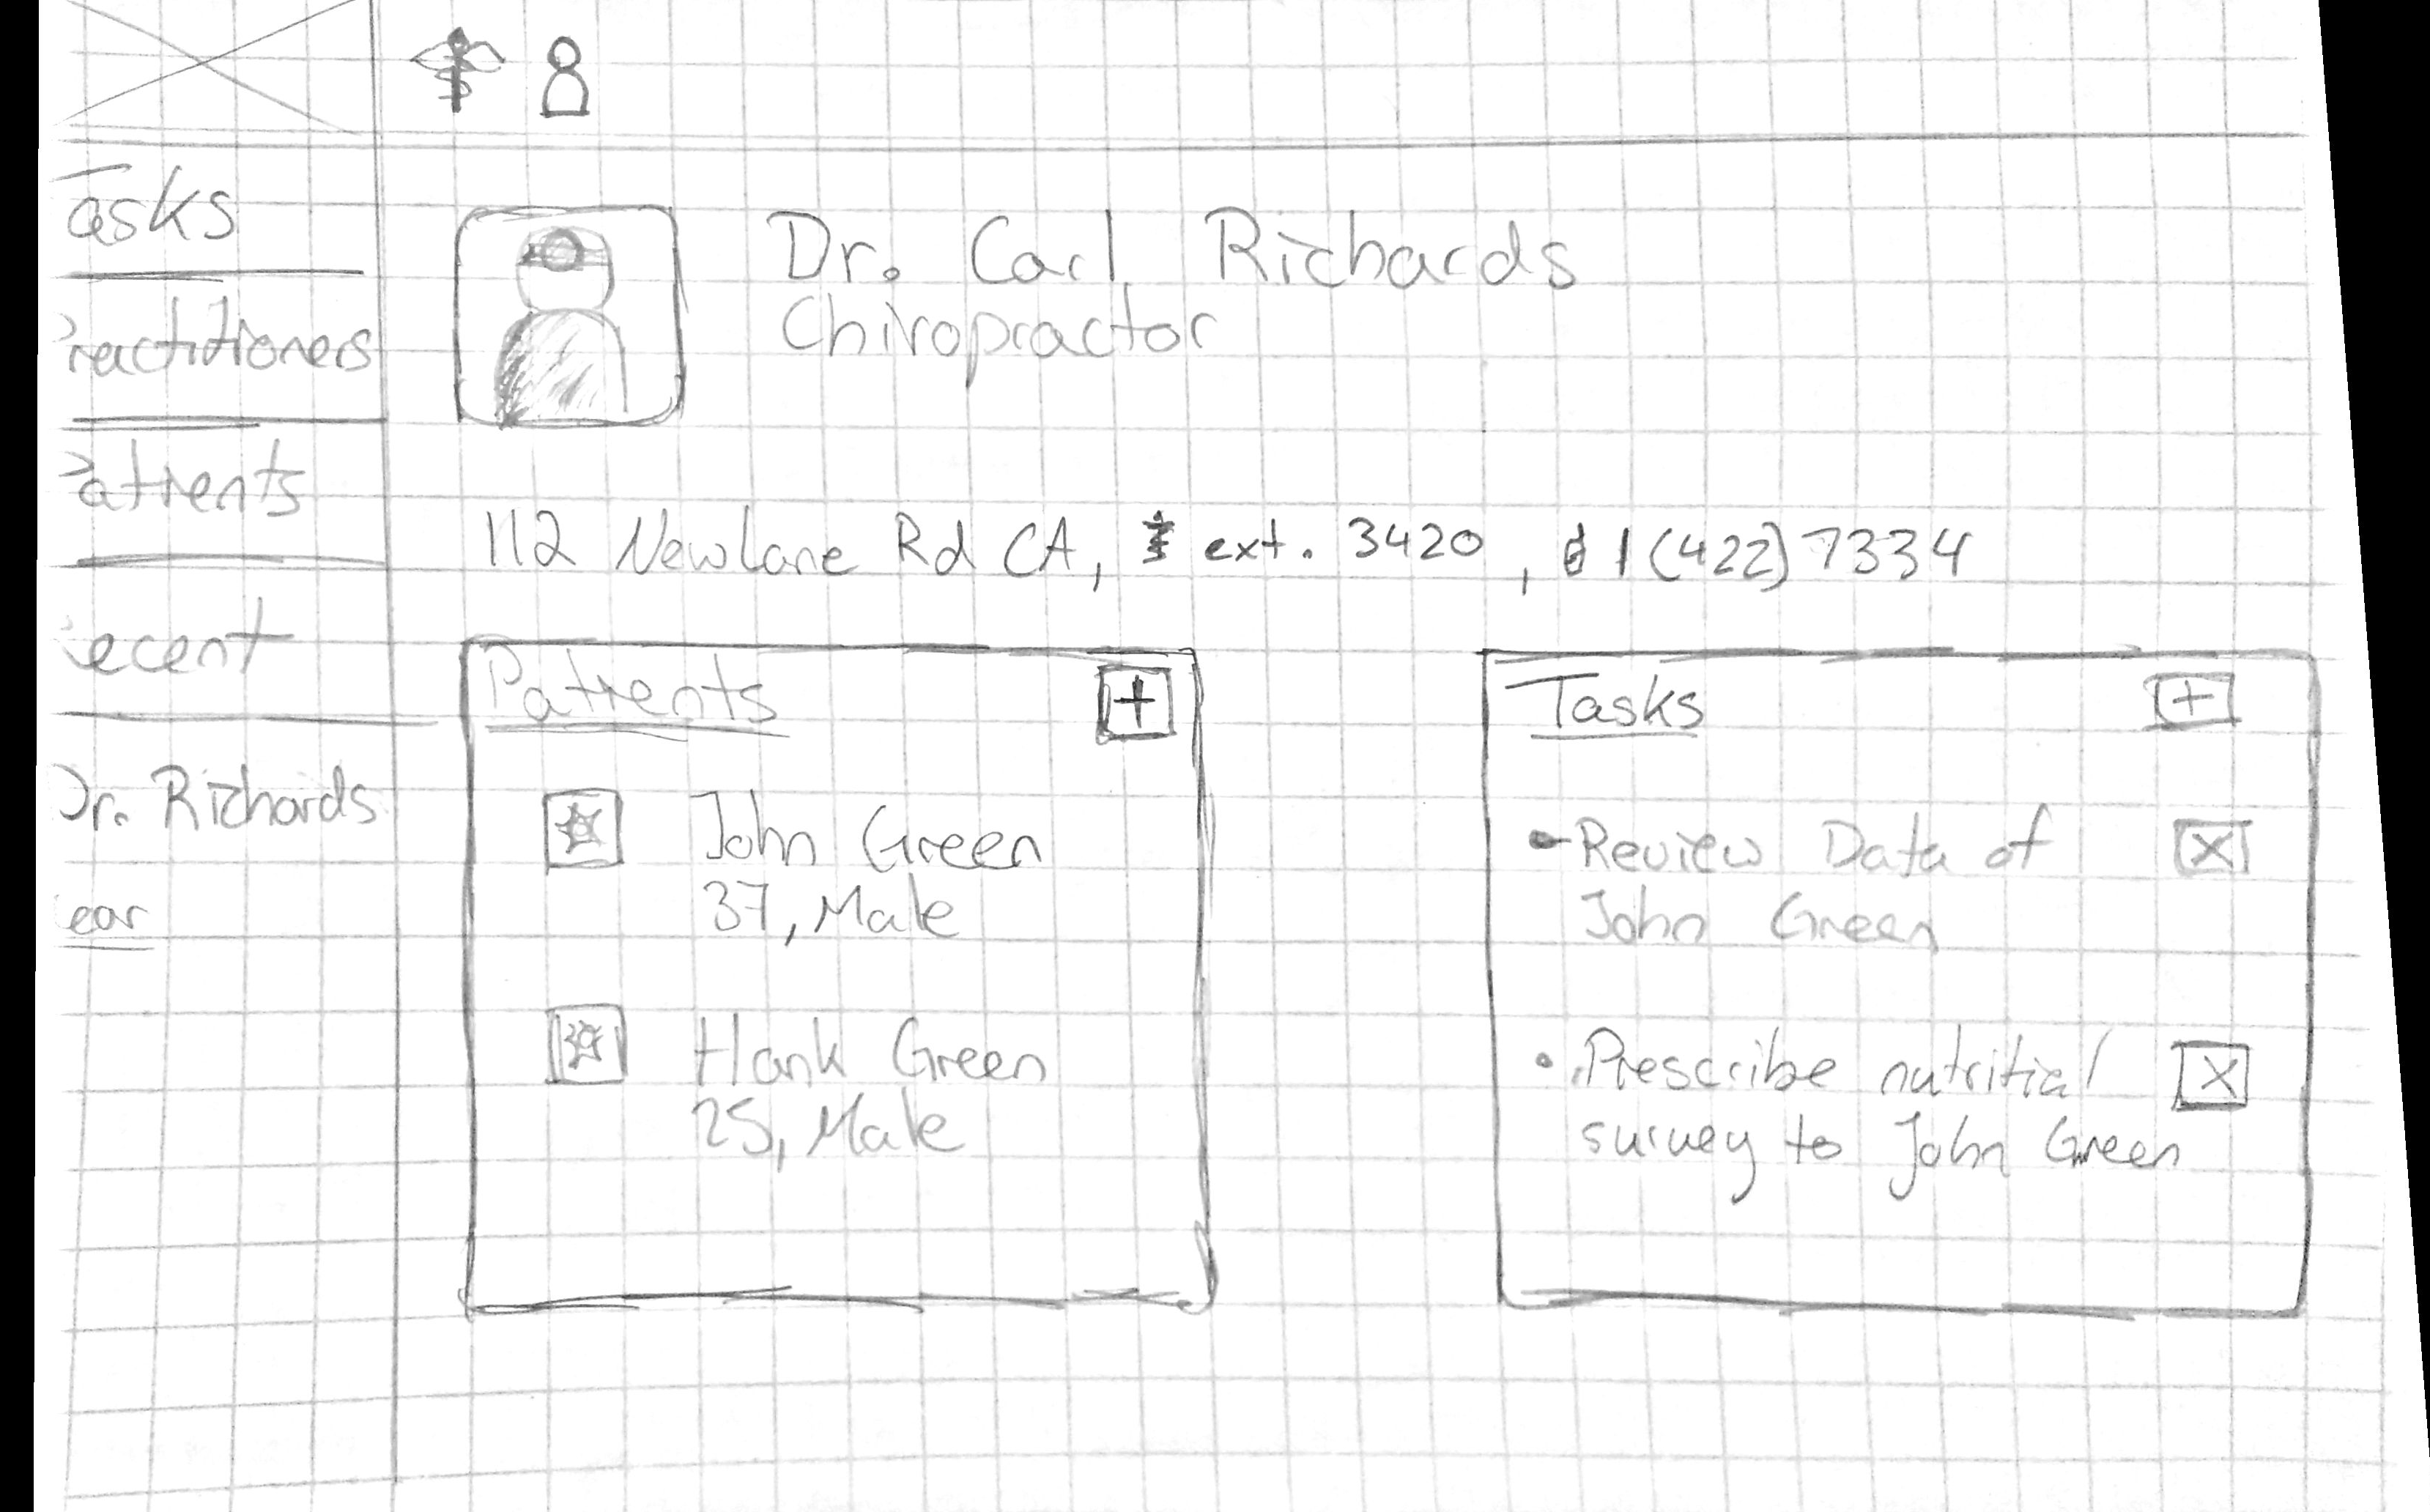 Tasks
Practitioners
Patients
Recent
Dr. Richards
ear
Dr. Carl Richards
Chiropractor
112 Newlane Rd CA, ext. 3420, 1(422)7334
Patients +
John Green
37, Male
Hank Green
25, Male
Tasks +
-Review Data of X
John Green
• Prescribe nutritial X
survey to John Green